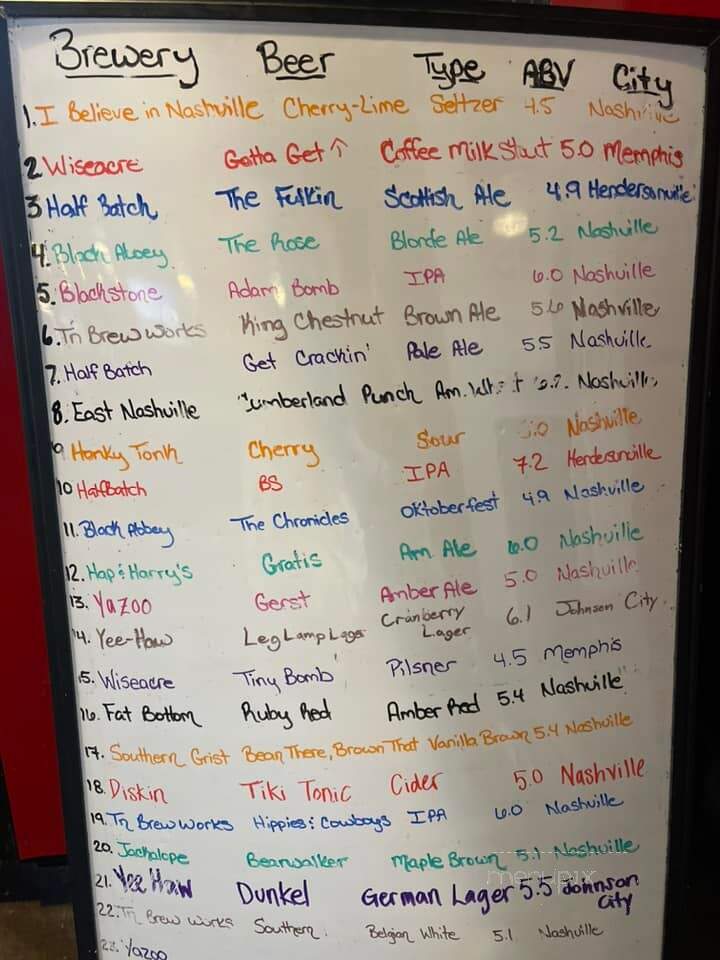 Brewery Beer Type ABV City
1. I Believe in Nashville Cherry-Lime Seltzer 4.5 Nashville
2 Wiseacre Gotta Get ↑ Coffee Milk Stout 5.0 Memphis
3 Half Batch The Fulkin Scottish Ale 4.9 Hendersonville
4. Black Abbey The Rose Blonde Ale 5.2 Nashville
5. Blackstone Adam Bomb IPA 6.0 Nashville
6. Tn Brew Works King Chestnut Brown Ale 5.6 Nashville
7. Half Batch Get Crackin' Pale Ale 5.5 Nashville
8. East Nashville Cumberland Punch Am. Nashville
9 Honky Tonk Cherry Sour Nashville
10 Half Batch BS IPA 7.2 Hendersonville
11. Black Abbey The Chronicles Oktoberfest 4.9 Nashville
12. Hap & Harry's Gratis Am Ale 6.0 Nashville
13. Yazoo Gerst Amber Ale 5.0 Nashville
14. Yee-Haw Leg Lamp Lager Cranberry Lager 6.1 Johnson City
15. Wiseacre Tiny Bomb Pilsner 4.5 Memphis
16. Fat Bottom Ruby Red Amber Red 5.4 Nashville
17. Southern Grist Bean There, Brown That Vanilla Brown 5.4 Nashville
18. Diskin Tiki Tonic Cider 5.0 Nashville
19. Tn Brew Works Hippies & Cowboys IPA 6.0 Nashville
20. Jackalope Bearwalker Maple Brown 5.1 Nashville
21. Yee Haw Dunkel German Lager 5.5 Johnson City
menupix
22. Tn Brew Works Southern. Belgian White 5.1 Nashville
23. Yazoo